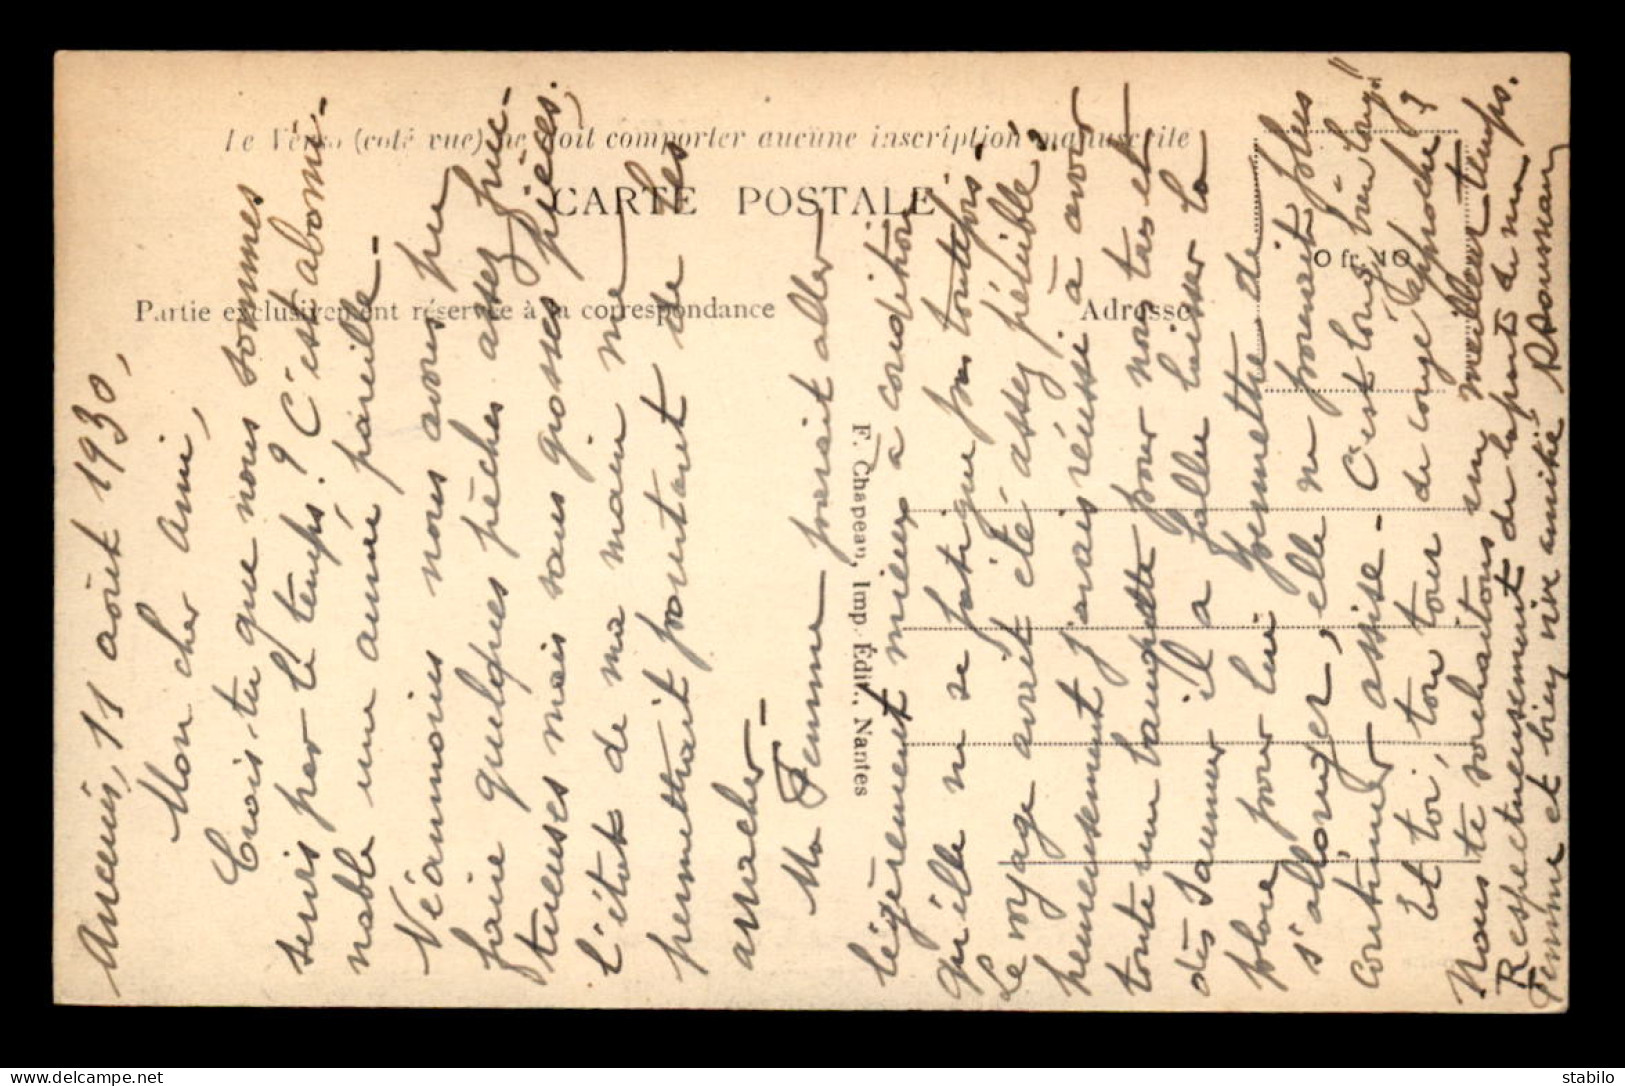 Le Verso (coté vue) ne doit comporter aucune inscription manuscrite
CARTE POSTALE
Partie exclusivement réservée à la correspondance
Adresse
0 fr. 10
F. Chapeau, Imp. Édit., Nantes
Ancenis, 11 août 1930,
Mon cher ami,
Crois-tu que nous sommes
servis par le temps ? C'est abomi-
nable une année pareille -
Néanmoins nous avons pu
faire quelques pêches assez fruc-
tueuses mais sans grosses pièces.
L'état de ma main me
permettrait pourtant de les
arracher -
Ma Femme paraît aller
légèrement mieux à condition
qu'elle ne se fatigue pas toutefois -
Le voyage avait été assez pénible,
heureusement j'avais réussi à avoir
toute une banquette pour nous tas et
dès Saumur il a fallu laisser la
place pour lui permettre de
s'allonger, elle ne pouvait plus
continuer assise - C'est long, bien long !!
Et toi, ton tour de congé approche ?
Nous te souhaitons un meilleur temps.
Respectueusement de la part de ma
Femme et bien vive amitié